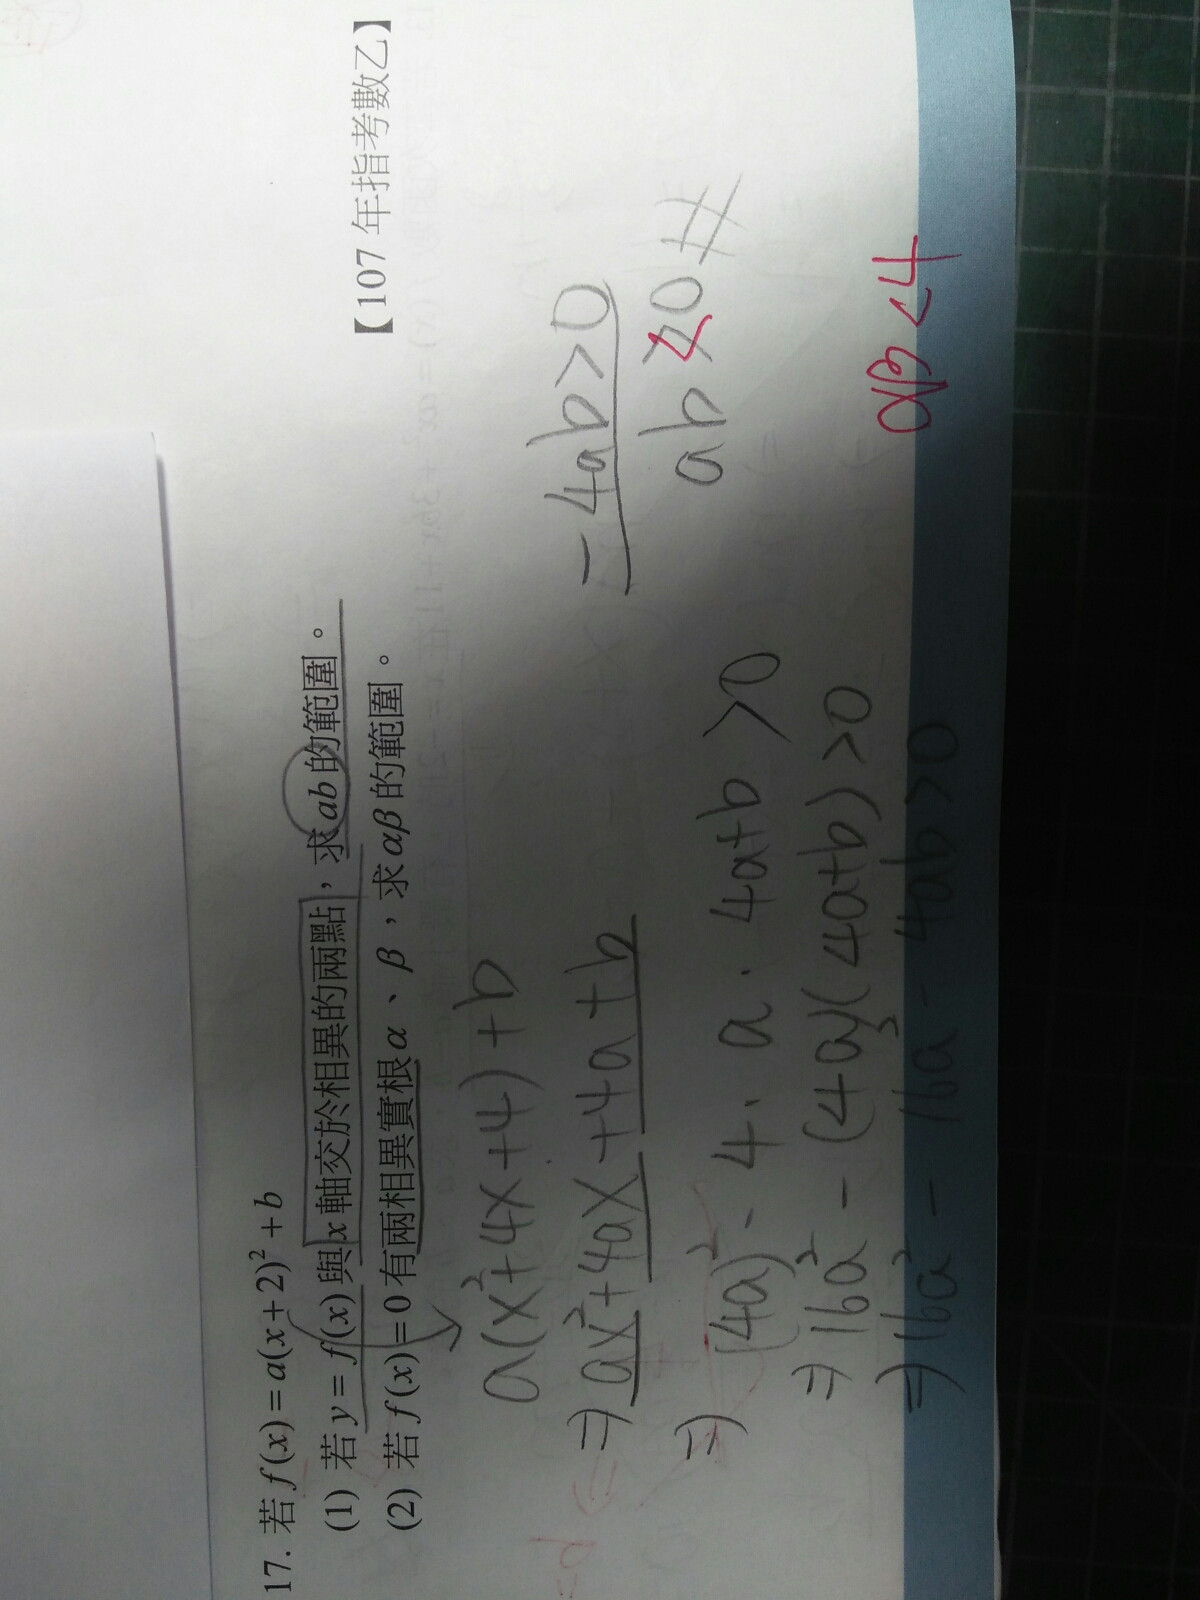 17. 若 f(x)=a(x+2)²+b
(1) 若 y=f(x) 與 x 軸交於相異的兩點，求 ab 的範圍。
(2) 若 f(x)=0 有兩相異實根 α、β，求 αβ 的範圍。
【107 年指考數乙】
a(x²+4x+4)+b
⇒ax²+4ax+4a+b
⇒(4a)²-4·a·4a+b>0
⇒16a²-(4a)(4a+b)>0
⇒16a²-16a²-4ab>0
-4ab>0
ab<0#
αβ<4